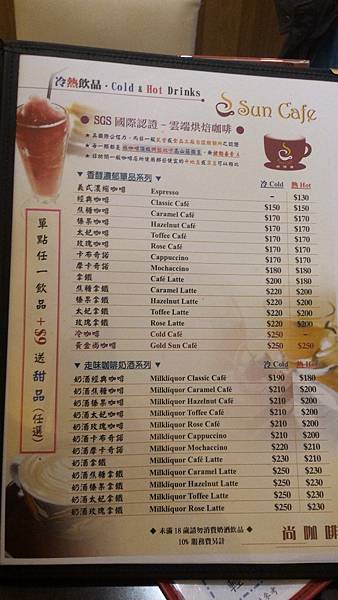 冷熱飲品·Cold & Hot Drinks
Sun Café
● SGS 國際認證－雲端烘焙咖啡 ●
單點任一飲品+$9送甜品(任選)
▼ 香醇濃郁單品系列 ▼ 冷 Cold 熱 Hot
義式濃縮咖啡 Espresso － $130
經典咖啡 Classic Café $150 $150
焦糖咖啡 Caramel Café $170 $170
榛果咖啡 Hazelnut Café $170 $170
太妃咖啡 Toffee Café $170 $170
玫瑰咖啡 Rose Café $170 $170
卡布奇諾 Cappuccino $170 $170
摩卡奇諾 Mochaccino $180 $180
拿鐵 Café Latte $200 $180
焦糖拿鐵 Caramel Latte $220 $200
榛果拿鐵 Hazelnut Latte $220 $200
太妃拿鐵 Toffee Latte $220 $200
玫瑰拿鐵 Rose Latte $220 $200
冷咖啡 Cold Café $250 －
黃金尚咖啡 Gold Sun Café $250 $250
▼ 走味咖啡奶酒系列 ▼ 冷 Cold 熱 Hot
奶酒經典咖啡 Milkliquor Classic Café $190 $180
奶酒焦糖咖啡 Milkliquor Caramel Café $210 $200
奶酒榛果咖啡 Milkliquor Hazelnut Café $210 $200
奶酒太妃咖啡 Milkliquor Toffee Café $210 $200
奶酒玫瑰咖啡 Milkliquor Rose Café $210 $200
奶酒卡布奇諾 Milkliquor Cappuccino $210 $200
奶酒摩卡奇諾 Milkliquor Mochaccino $220 $210
奶酒拿鐵 Milkliquor Café Latte $230 $210
奶酒焦糖拿鐵 Milkliquor Caramel Latte $250 $230
奶酒榛果拿鐵 Milkliquor Hazelnut Latte $250 $230
奶酒太妃拿鐵 Milkliquor Toffee Latte $250 $230
奶酒玫瑰拿鐵 Milkliquor Rose Latte $250 $230
◆ 未滿 18 歲請勿消費奶酒飲品 ◆
10% 服務費另計
尚咖啡